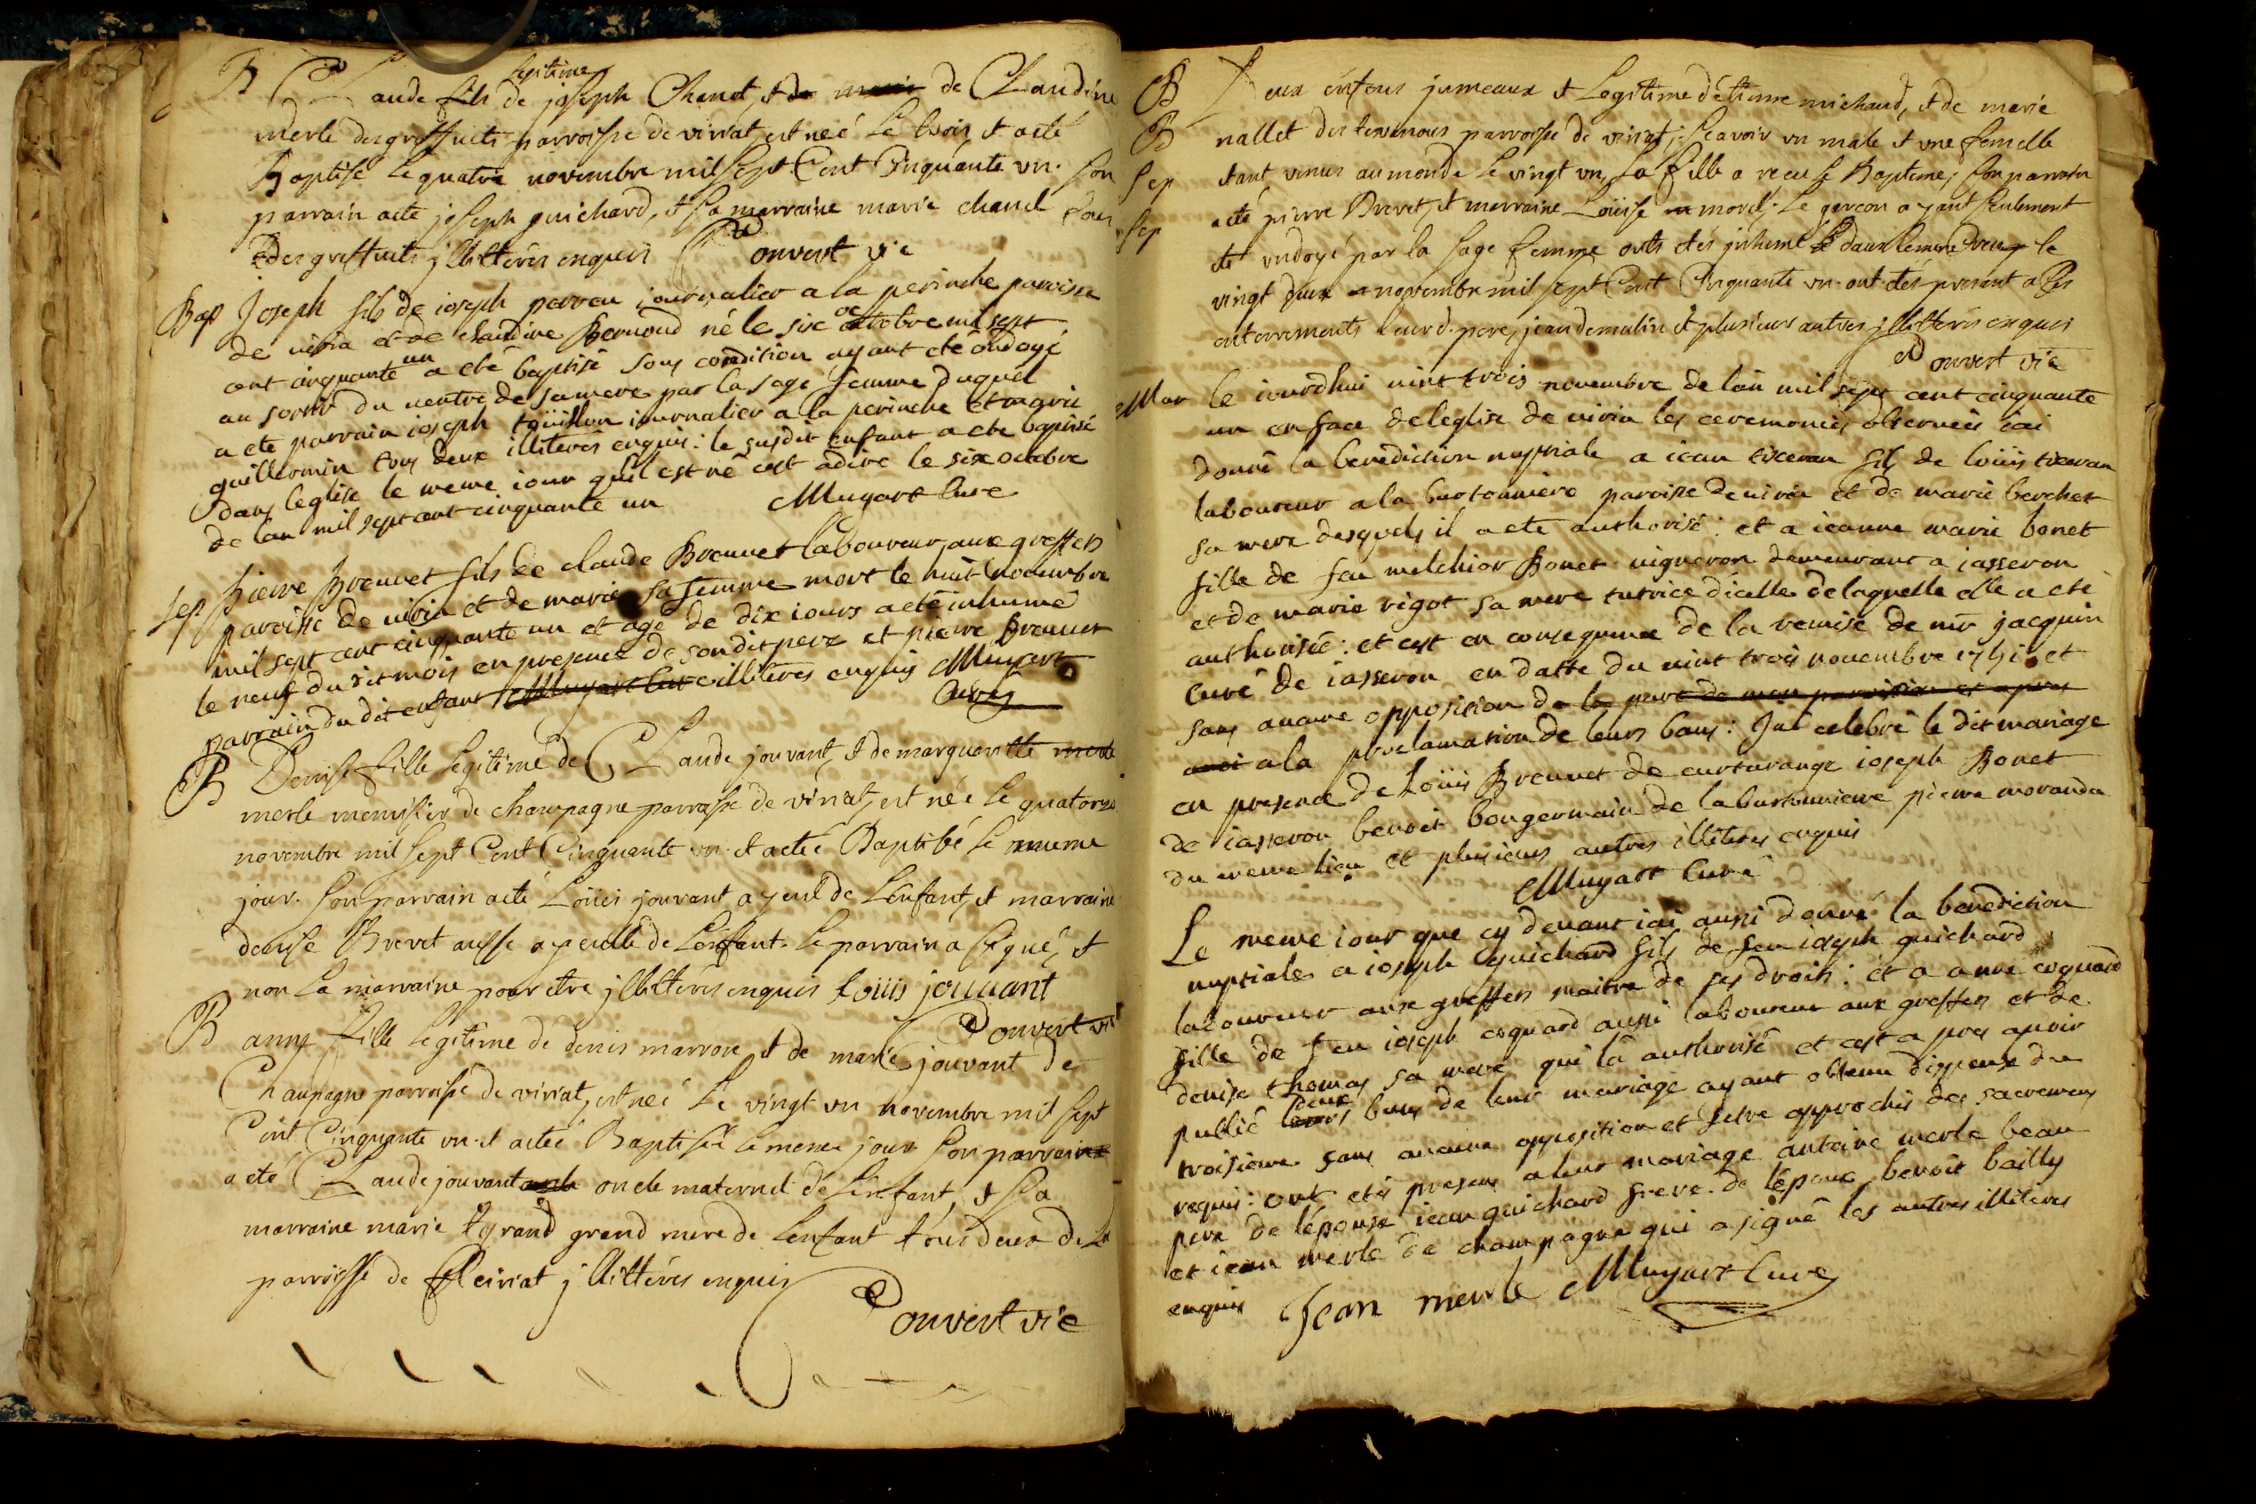 B Claude fils legitime de joseph Chanel, et de Claudine
merle des greffets parroisse de viriat, est neé le trois, et a eté
Baptisé le quatre novembre mil sept Cent Cinquante un. Son
parrain a eté joseph guichard, et sa marraine marie chanel tous
des greffets illitterés enquis Convert vic
Bap Joseph fils de ioseph perreu iournalier a la perinche paroisse
de viria et de claudine Bernoud né le six octobre mil sept
cent cinquante un a eté baptisé sous condition ayant eté ondoyé
au sortir du ventre de sa mere par la sage femme duquel
a ete parrain ioseph iournalier a la perinche et marie
guillermin tous deux illiterés enquis: le susdit enfant a ete baptisé
dans leglise le meme iour quil est né cest adire le six octobre
de lan mil sept cent cinquante un Muyart Curé
Sep Pierre Brevvet fils de claude Brevvet laboureur aux greffets
paroisse de viria et de marie sa femme mort le huit novembre
mil sept cent cinquante un et agé de dix iours a eté inhumé
le neuf du dit mois en presence de son dit pere et pierre Brevvet
parrain du dit enfant Muyart Curé illiterés enquis Muyart
Curé
B Denise fille legitime de Claude jouvant, et de marguerite merle
merle menusier de champagne parroisse de viriat, est née le quatorze
novembre mil sept Cent Cinquante un. et a eté Baptisé le meme
jour. Son parrain a eté Loüis jouvant ayeul de Lenfant, et marraine
denise Brevet aussi ayeulle de Lenfant. le parrain a signé, et
non la marraine pour etre illitterés enquis Loüis jouuant
Convert vic
B anne fille legitime de denis marron et de marie jouvant de
Champagne parroisse de viriat, est neé le vingt un novembre mil sept
Cent Cinquante un. et a eteé Baptisée le meme jour Son parrain
a eté Claude jouvant oncle maternel de Lenfant, et Sa
marraine marie tyrand grand mere de Lenfant tous deux de la
parroisse de illitterés enquis
Convert vic
B Deux enfans jumeaux et Legitime d'étienne michaud, et de marie
B nallet des parroisse de viriat, scavoir un male et une femelle
Sep etant venus au monde le vingt un, la fille a receu le Bapteme, son parrain
Sep a eté pierre Brevet, et marraine Loüise morel. Le garcon ayant seulement
eté ondoyé par la sage femme onts etés inhumé le vingt
vingt deux novembre mil sept Cent Cinquante un. ont étés present a les
enterrements leur d. pere, jean demalin et plusieurs autres illitterés enquis
Convert vic
Mar le iourdhui vint trois novembre de lan mil sept cent cinquante
un en face de leglise de viria les ceremonies observeés iai
donné la benediction nuptiale a iean tisceran fils de loüis tisceran
laboureur a la burtonniere paroisse de viria et de marie berchet
sa mere desquels il a ete authorisé: et a ieanne marie bonet
fille de feu melchior Bonet vigneron demeurant a iasseron
et de marie rigot sa mere tutrice dicelle de laquelle elle a ete
authorisée: et cest en consequence de la remise de mr jacquin
Curé de iasseron en datte du vint trois novembre 1751. et
sans aucune opposition de la part de mon paroissien et apres
a la proclamation de leurs bans: Jai celebré le dit mariage
en presence de Loüis Brevvet de curtarange ioseph Bonet
de iasseron benoit bongermain de la burtonniere pierre morandu
du meme lieu et plusieurs autres illiteres enquis
Muyart Curé
Le meme iour que cy devant iai aussi donné la benediction
nuptiale a ioseph guichard fils de feu ioseph guichard
laboureur aux greffets maitre de ses droits: et a anne coquard
fille de feu ioseph coquard aussi laboureur aux greffets et de
denise thomas sa mere qui la authorisé et cest apres avoir
publié deux bans de leur mariage ayant obtenu dispense du
troisieme sans aucune opposition et setre approchés des sacremens
requis: ont etés presens a leur mariage antoine merle beau
pere de lépouse iean guichard frere de lépoux benoit bailly
et iean merle de champagne qui a signé les autres illiteres
enquis Jean merle Muyart Curé